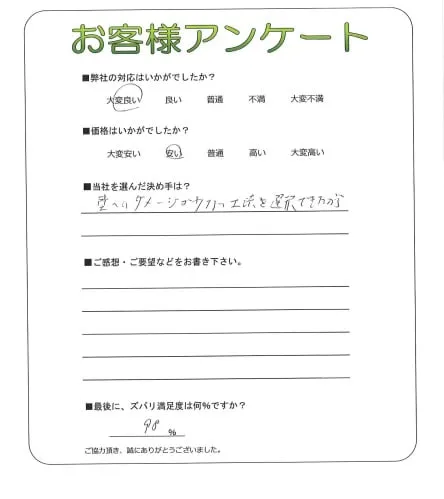 お客様アンケート
■弊社の対応はいかがでしたか？
大変良い 良い 普通 不満 大変不満
■価格はいかがでしたか？
大変安い 安い 普通 高い 大変高い
■当社を選んだ決め手は？
壁へのダメージが少ない工法を選択できた方
■ご感想・ご要望などをお書き下さい。
■最後に、ズバリ満足度は何％ですか？
98 %
ご協力頂き、誠にありがとうございました。